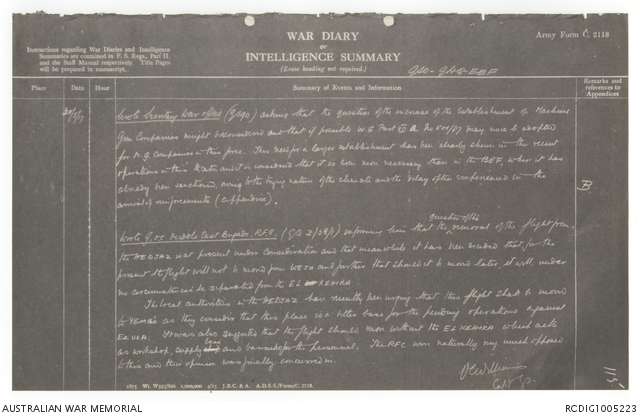 WAR DIARY
or
INTELLIGENCE SUMMARY
(Erase heading not required.)
Army Form C. 2118
Instructions regarding War Diaries and Intelligence
Summaries are contained in F. S. Regs., Part II
and the Staff Manual respectively. Title Pages
will be prepared in manuscript.
GSO. GHQ-EEF
Place
Date
Hour
Summary of Events and Information
Remarks and
references to
Appendices
Wrote Secretary War Office asking that the question of the increase of the establishment of Machine
Gun Companies might be considered and that if possible W.E. Part may now be adopted
for M.G. Companies in this force. The need for a larger establishment has been already shewn in the recent
operations in this theatre and it is considered that it is even more necessary than in the BEF, where it has
already been sanctioned, owing to the trying nature of the climate and the delay often experienced in the
arrival of reinforcements (appendix).
B
question of the
Wrote G.O.C. Middle East Brigade, RFC, informing him that the removal of the flight from
the HEDJAZ was at present under consideration and that meanwhile it has been decided that for the
present the flight will not be moved from WEJH and further that should it be moved later, it will under
no circumstances be separated from the EL KEHIRA
The local authorities in the HEDJAZ have recently been urging that this flight should be moved
to as they consider that this place is a better base for the pending operations against
EL ULA. It was also suggested that the flight should move without the EL KEHIRA which acts
as workshop, supply base and barracks for the personnel. The RFC were naturally very much opposed
to this and their opinion was finally concurred in.
115
1875 Wt. W593/826 1,000,000 4/15 J.B.C. & A. A.D.S.S./Forms/C. 2118.
AUSTRALIAN WAR MEMORIAL
RCDIG1005223